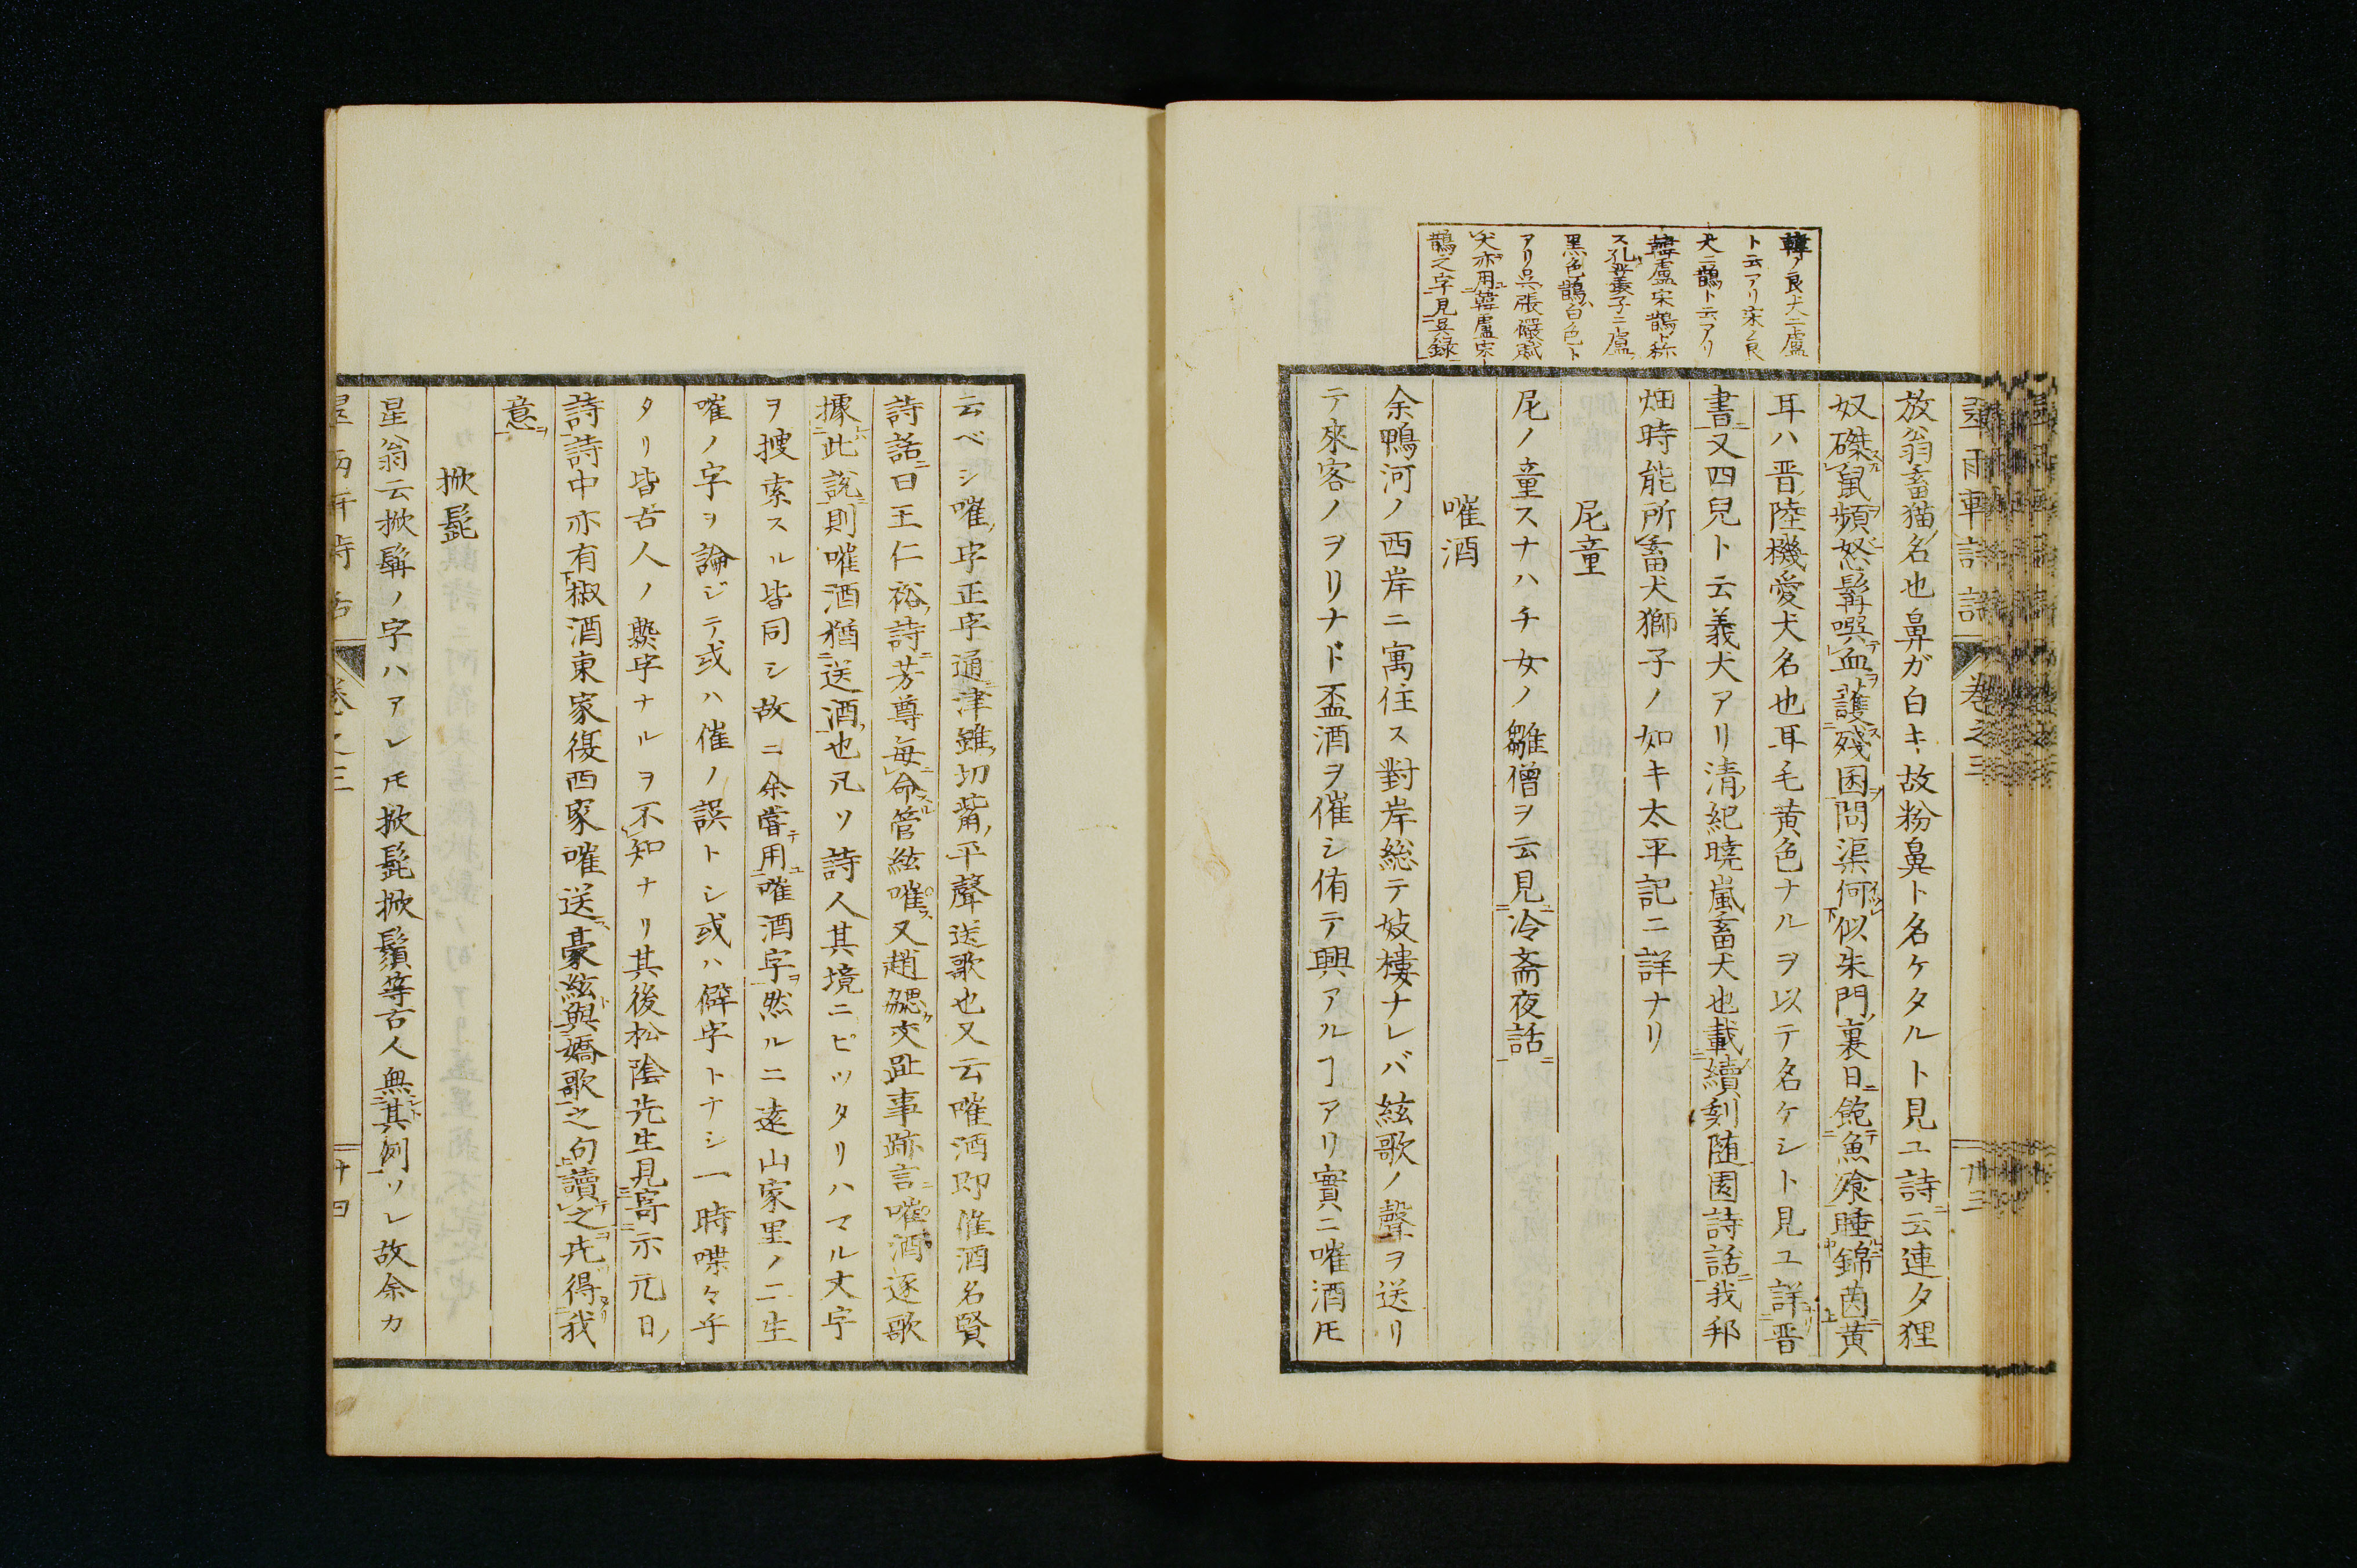 韓ノ良犬ニ盧
ト云アリ宋ノ良
犬ニ鵲ト云アリ
韓盧宋鵲ト称
ス孔叢子ニ盧ハ
黒色鵲ハ白色ト
アリ呉張儼賦
犬亦用韓盧宋
鵲之字見呉録
放翁畜猫ノ名也鼻ガ白キ故粉鼻ト名ケタルト見ユ詩ニ云連夕狸
奴磔鼠頻怒髯噀血護殘囷問渠何似朱門裏日飽魚飧睡錦茵黄
耳ハ晋ノ陸機愛犬名也耳毛黄色ナルヲ以テ名ケシト見ユ詳ナリ晋
書ニ又四兒ト云義犬アリ清ノ紀曉嵐畜犬也載續刻随園詩話ニ我邦
畑時能所畜犬獅子ノ如キ太平記ニ詳ナリ
尼童
尼ノ童スナハチ女ノ雛僧ヲ云見冷斎夜話
嗺酒
余鴨河ノ西岸ニ寓住ス對岸総テ妓樓ナレバ絃歌ノ聲ヲ送リ
テ來客ノヲリナド盃酒ヲ催シ侑テ興アルヿアリ實ニ嗺酒トモ
云ベシ嗺ノ字正字通津雖切觜平聲送歌也又云嗺酒即催酒名賢
詩話ニ曰王仁裕詩ニ芳尊毎命管絃嗺又趙勰交趾事跡言嗺酒逐歌
據此説則嗺酒猶送酒也凡ソ詩人其境ニピッタリハマル文字
ヲ捜索スル皆同シ故ニ余嘗テ用嗺酒字然ルニ遠山家里ノ二生
嗺ノ字ヲ論ジテ或ハ催ノ誤トシ或ハ僻字トナシ一時喋々乎
タリ皆古人ノ熟字ナルヲ不知ナリ其後松陰先生見寄示元日ノ
詩詩中亦有椒酒東家復西家嗺送豪絃與嬌歌之句讀之先得我
意
掀髭
星翁云掀髯ノ字ハアレトモ掀髭掀鬚等古人無其例ソレ故余カ
卷之三
十四